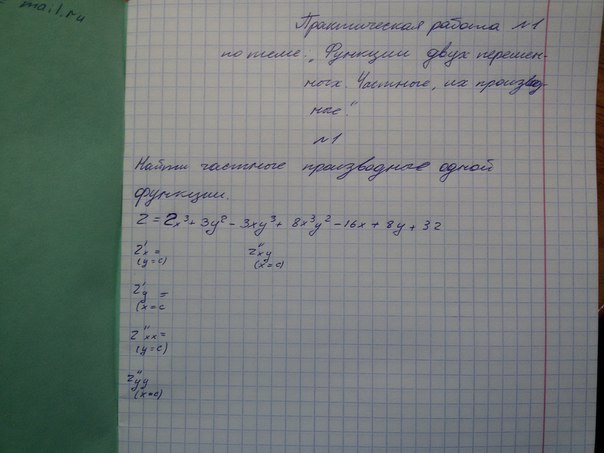 mail.ru
Практическая работа №1
по теме: „Функции двух перемен-
ных. Частные, их производ-
ные."
№1
Найти частные производные одной
функции.
Z = 2x³ + 3y² - 3xy³ + 8x³y² - 16x + 8y + 32
z'x =
(y=c)
z''xy
(x=c)
z'y =
(x=c
z''xx =
(y=c)
z''yy
(x=c)